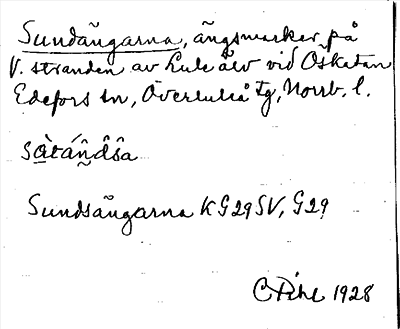 Sundängarna, ängsmarker på
V. stranden av Lule älv vid Öskatan
Edefors sn, Överluleå tg, Norrb. l.
Sundsängarna KG29SV, G29
C Pihl 1928